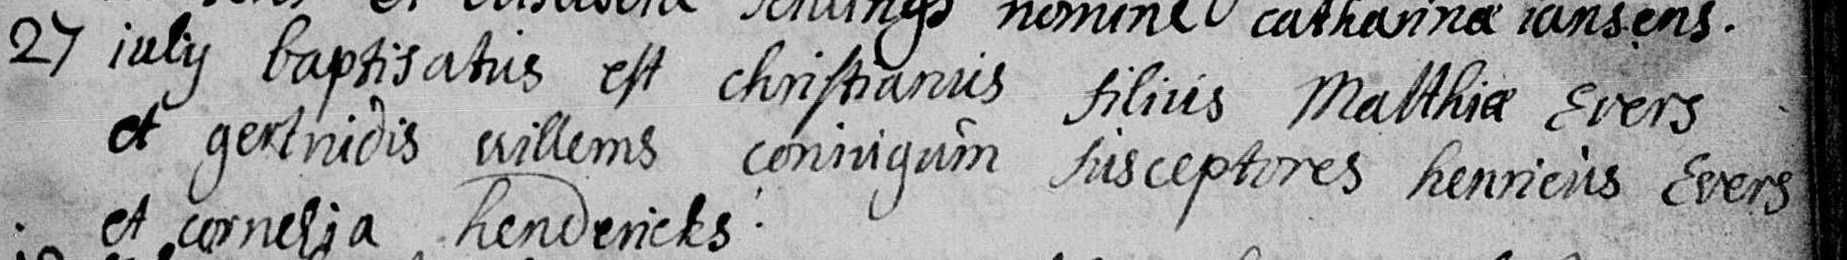 nomine catharinæ iansens.
27 iulij baptisatus est christianus filius Matthiæ Evers
et gertrudis willems coniugum susceptores henricus Evers
et cornelia hendericks.